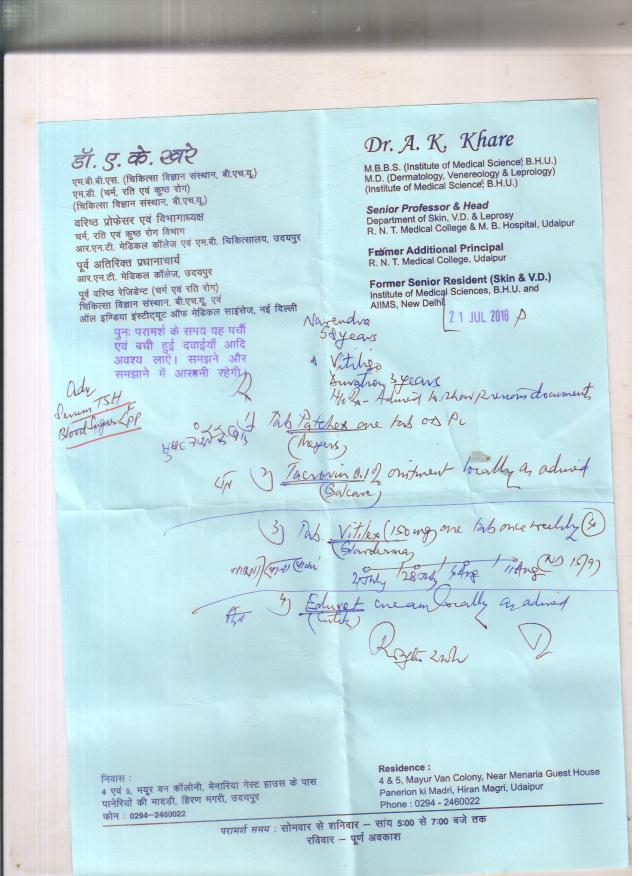 डॉ. ए. के. खरे
एम.बी.बी.एस. (चिकित्सा विज्ञान संस्थान, बी.एच.यू.)
एम.डी. (चर्म, रति एवं कुष्ठ रोग)
(चिकित्सा विज्ञान संस्थान, बी.एच.यू.)
वरिष्ठ प्रोफेसर एवं विभागाध्यक्ष
चर्म, रति एवं कुष्ठ रोग विभाग
आर.एन.टी. मेडिकल कॉलेज एवं एम.बी. चिकित्सालय, उदयपुर
पूर्व अतिरिक्त प्रधानाचार्य
आर.एन.टी. मेडिकल कॉलेज, उदयपुर
पूर्व वरिष्ठ रेजिडेन्ट (चर्म एवं रति रोग)
चिकित्सा विज्ञान संस्थान, बी.एच.यू. एवं
ऑल इण्डिया इंस्टीट्यूट ऑफ मेडिकल साइंसेज, नई दिल्ली
पुनः परामर्श के समय यह पर्ची
एवं बची हुई दवाईयाँ आदि
अवश्य लाएं। समझने और
समझाने में आसानी रहेगी।
Dr. A. K. Khare
M.B.B.S. (Institute of Medical Science, B.H.U.)
M.D. (Dermatology, Venereology & Leprology)
(Institute of Medical Science, B.H.U.)
Senior Professor & Head
Department of Skin, V.D. & Leprosy
R. N. T. Medical College & M. B. Hospital, Udaipur
Former Additional Principal
R. N. T. Medical College, Udaipur
Former Senior Resident (Skin & V.D.)
Institute of Medical Sciences, B.H.U. and
AIIMS, New Delhi
21 JUL 2018
Narendra
58 years
Vitiligo
Duration 3 years
Advised to show previous documents
Adv
Serum TSH
Blood Sugar
1) Tab Patchex one tab OD
2) Tacrovin 0.1% ointment locally as advised
(Salcare)
3) Tab. Vitilex (150mg) one tab once weekly
(Glowderma)
28 July 4 Aug 11 Aug
4) Eduvet cream locally as advised
निवास :
4 एवं 5, मयूर वन कॉलोनी, मेनारिया गेस्ट हाउस के पास
पानेरियों की मादड़ी, हिरण मगरी, उदयपुर
फोन : 0294-2460022
Residence :
4 & 5, Mayur Van Colony, Near Menaria Guest House
Panerion ki Madri, Hiran Magri, Udaipur
Phone : 0294 - 2460022
परामर्श समय : सोमवार से शनिवार – सांय 5:00 से 7:00 बजे तक
रविवार – पूर्ण अवकाश